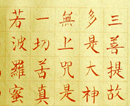 三菩提故
多是大神
無上咒是
一切苦真
若波羅蜜